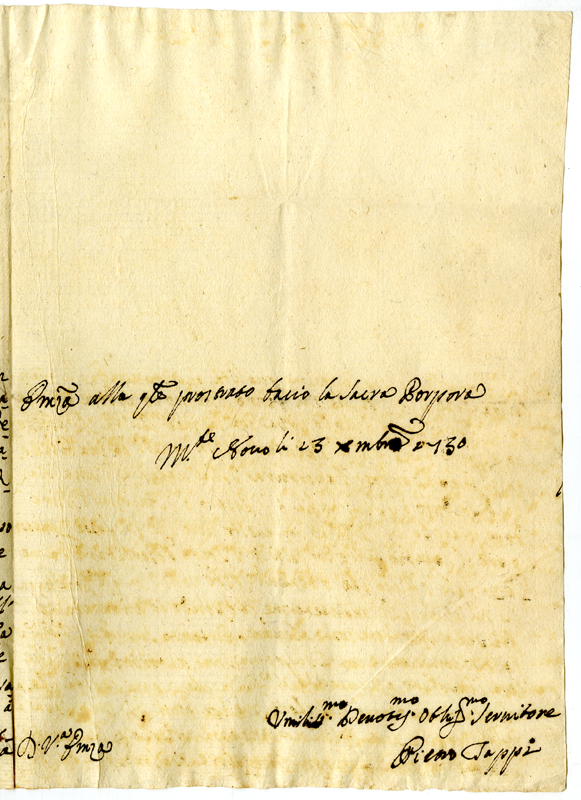 Emza alla qle prostrato bacio la sacra Porpora
M.te Novo li 23 xmbre 1730
Umiliss.mo Devotis.mo Oblig.mo Servitore
D. V.a Emza